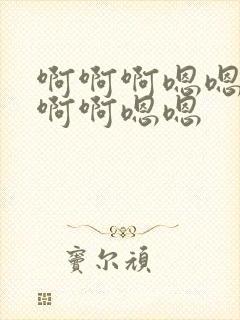 啊啊啊嗯嗯
啊啊嗯嗯
宝尔顽